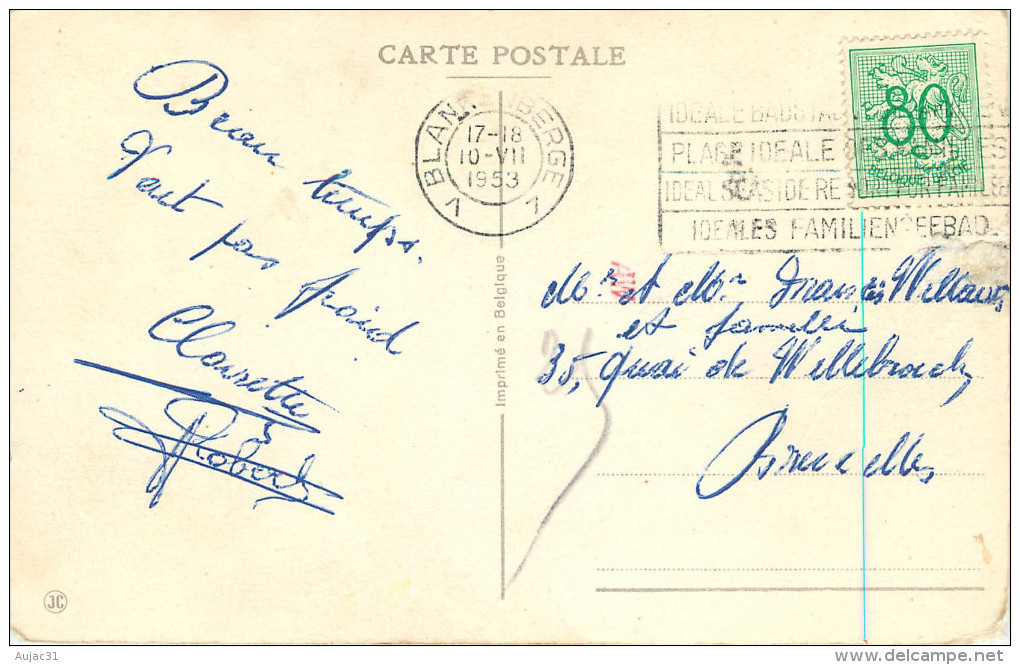 CARTE POSTALE
Beau temps.
Vent pas froid
Claurette
Robert
BLANKENBERGE
17-18
10-VII
1953
1 1
IDEALE BADSTAD
PLAGE IDEALE
IDEAL SEASIDE RESORT FOR FAMILIES
IDEALES FAMILIENSEEBAD.
80
BELGIQUE-BELGIE
AW
Mr et Mme François
et famille
35, Quai de Willebroeck
Bruxelles
Imprimé en Belgique
JC
Aujac31
delcampe.net